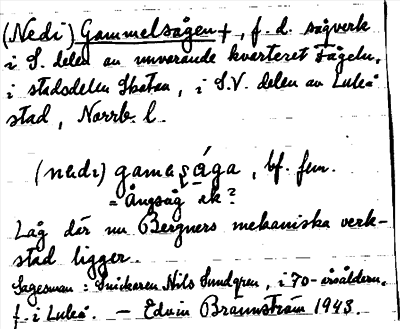 (Nedi) Gammelsågen †, f. d. sågverk
i S. delen av nuvarande kvarteret Fågeln,
i stadsdelen Skatan, i S.V. delen av Luleå
stad, Norrb. l.
(nedi) gamasága, bf. fem.
= Ångsåg ek?
Låg där nu Bergners mekaniska verk-
stad ligger.
Sagesman: Snickaren Nils Sundgren, i 70-årsåldern,
f. i Luleå. — Edvin Brännström 1943.